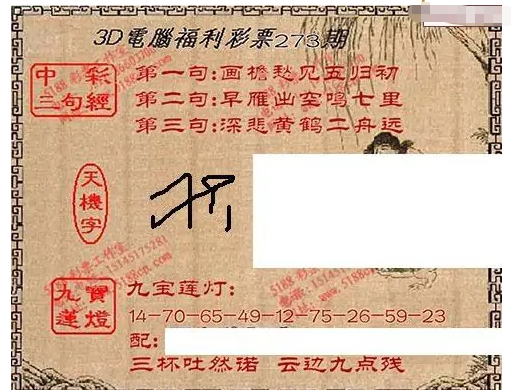 3D電腦福利彩票273期
中彩
三句經
第一句:画檐愁见五归初
第二句:早雁出空鸣七里
第三句:深悲黄鹤二舟远
天機字
九寶
蓮燈
九宝莲灯:
14-70-65-49-12-75-26-59-23
配:
三杯吐然诺 云边九点残